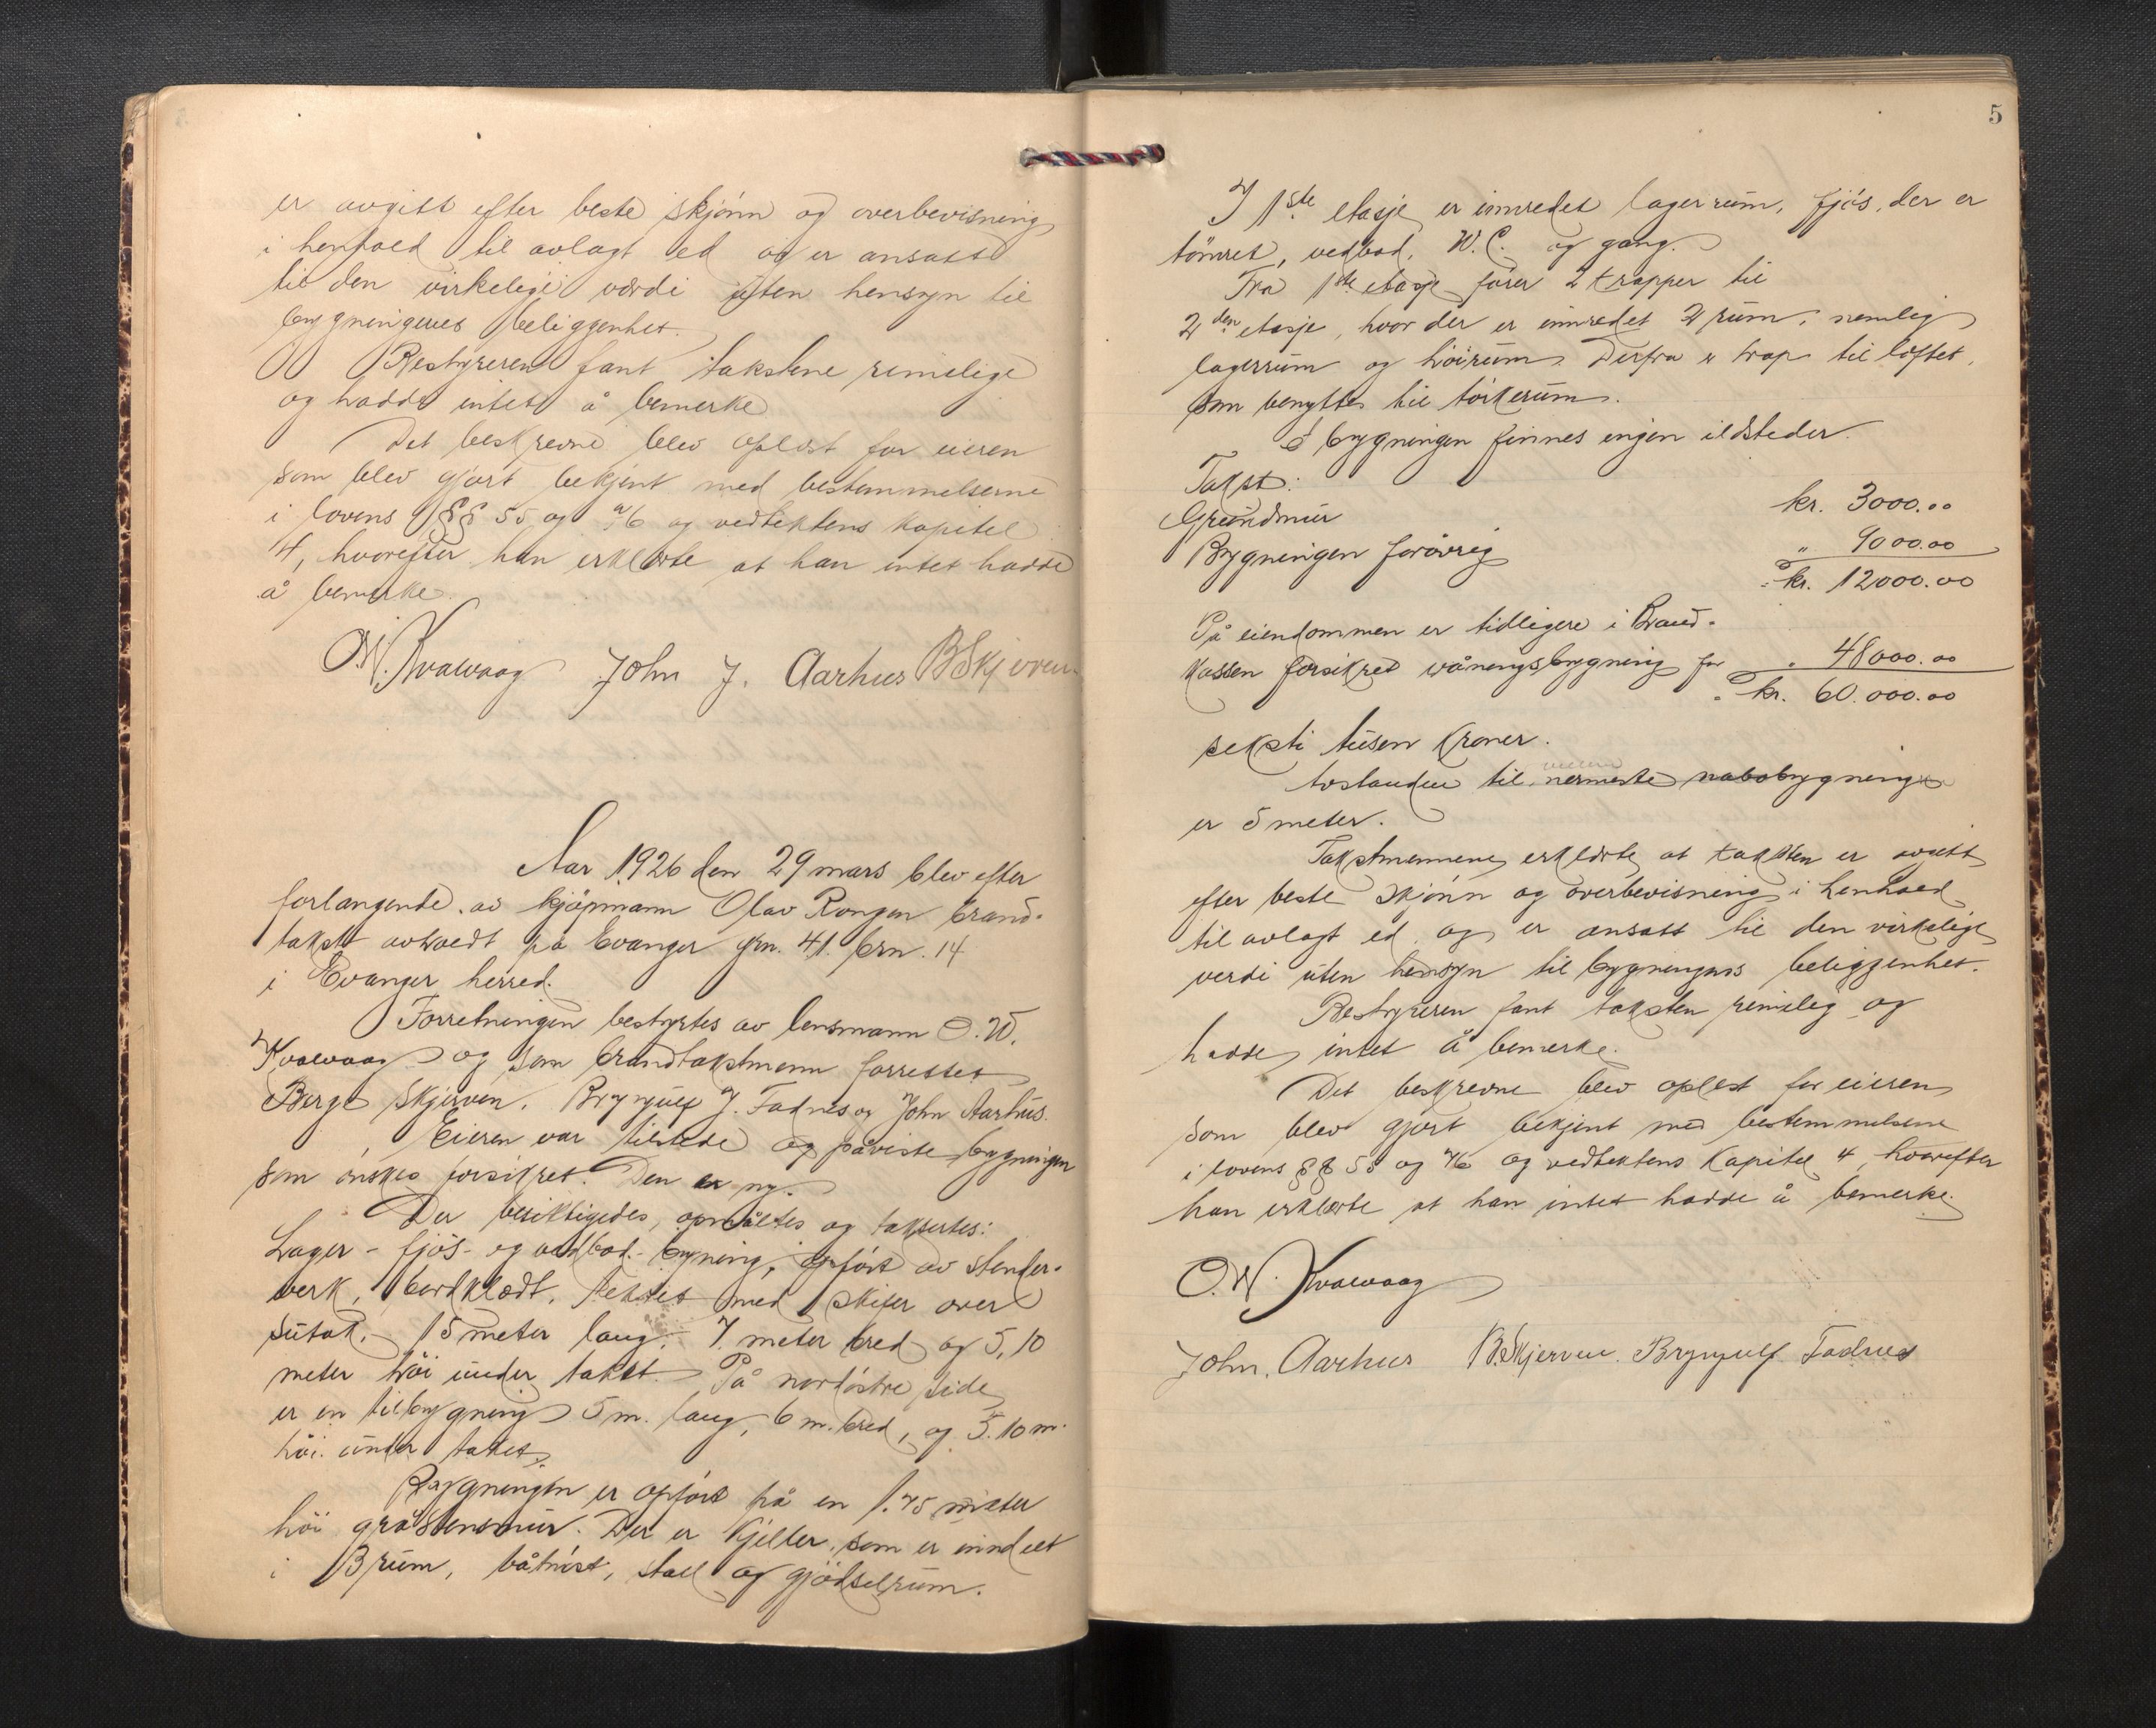 er avgitt efter beste skjönn og overbevisning
i henhold til avlagt ed og er ansatt
til den virkelige værdi uten hensyn til
bygningenes beliggenhet.
Bestyreren fant takstene rimelige
og hadde intet å bemerke
Det beskrevne blev oplest for eieren
som blev gjort bekjent med bestemmelserne
i lovens §§ 55 og 76 og vedtektens kapitel
4, hvorefter han erklærte at han intet hadde
å bemerke.
O.W. Kvalvaag John J. Aarhus B Skjerven
Aar 1926 den 29 mars blev efter
forlangende av kjöpmann Olav Rongen brand-
takst avholdt på Evanger grn. 41. brn. 14
i Evanger herred.
Forretningen bestyrtes av lensmann O. W.
Kvalvaag og som brandtakstmenn forrettet
Berge Skjerven, Brynjulf J. Fadnes og John Aarhus.
Eieren var tilstede og påviste bygningen
som önskes forsikret. Den er ny.
Der besiktigedes, opmåltes og taksertes:
Lager- fjös- og vedbod- bygning, opfört av stender-
verk, bordklædt, tekket med skifer over
sutak, 15 meter lang, 7 meter bred og 5,10
meter höi under taket. På nordöstre side
er en tilbygning 5 m. lang, 6 m. bred, og 5.10 m.
höi under taket.
Bygningen er opfört på en 1.75 meter
höi gråstensmur. Der er kjeller, som er inndelt
i 3 rum, båtnöst, stall og gjödselrum.
5
I 1ste etasje er innredet lagerrum, fjös, der er
tömret, vedbod, W.C. og gang.
Fra 1ste etasje förer 2 trapper til
2den etasje, hvor der er innredet 2 rum, nemlig
lagerrum og höirum. Derfra er trap til loftet,
som benyttes til törkerum.
I bygningen finnes ingen ildsteder.
Takst:
Grundmur kr. 3000.00
Bygningen forövrig " 9000.00
kr. 12000.00
På eiendommen er tidligere i Brand-
kassen forsikret våningsbygning for " 48000.00
kr. 60.000.00
seksti tusen kroner.
Avstanden til nærmeste nabobygning
er 5 meter.
Takstmennene erklærte at taksten er avgitt
efter beste skjönn og overbevisning i henhold
til avlagt ed og er ansatt til den virkelige
verdi uten hensyn til bygningens beliggenhet.
Bestyreren fant taksten rimelig og
hadde intet å bemerke.
Det beskrevne blev oplest for eieren,
som blev gjort bekjent med bestemmelsene
i lovens §§ 55 og 76 og vedtektens kapitel 4, hvorefter
han erklærte at han intet hadde å bemerke.
O. W. Kvalvaag
John. Aarhus B. Skjerven. Brynjulf Fadnes